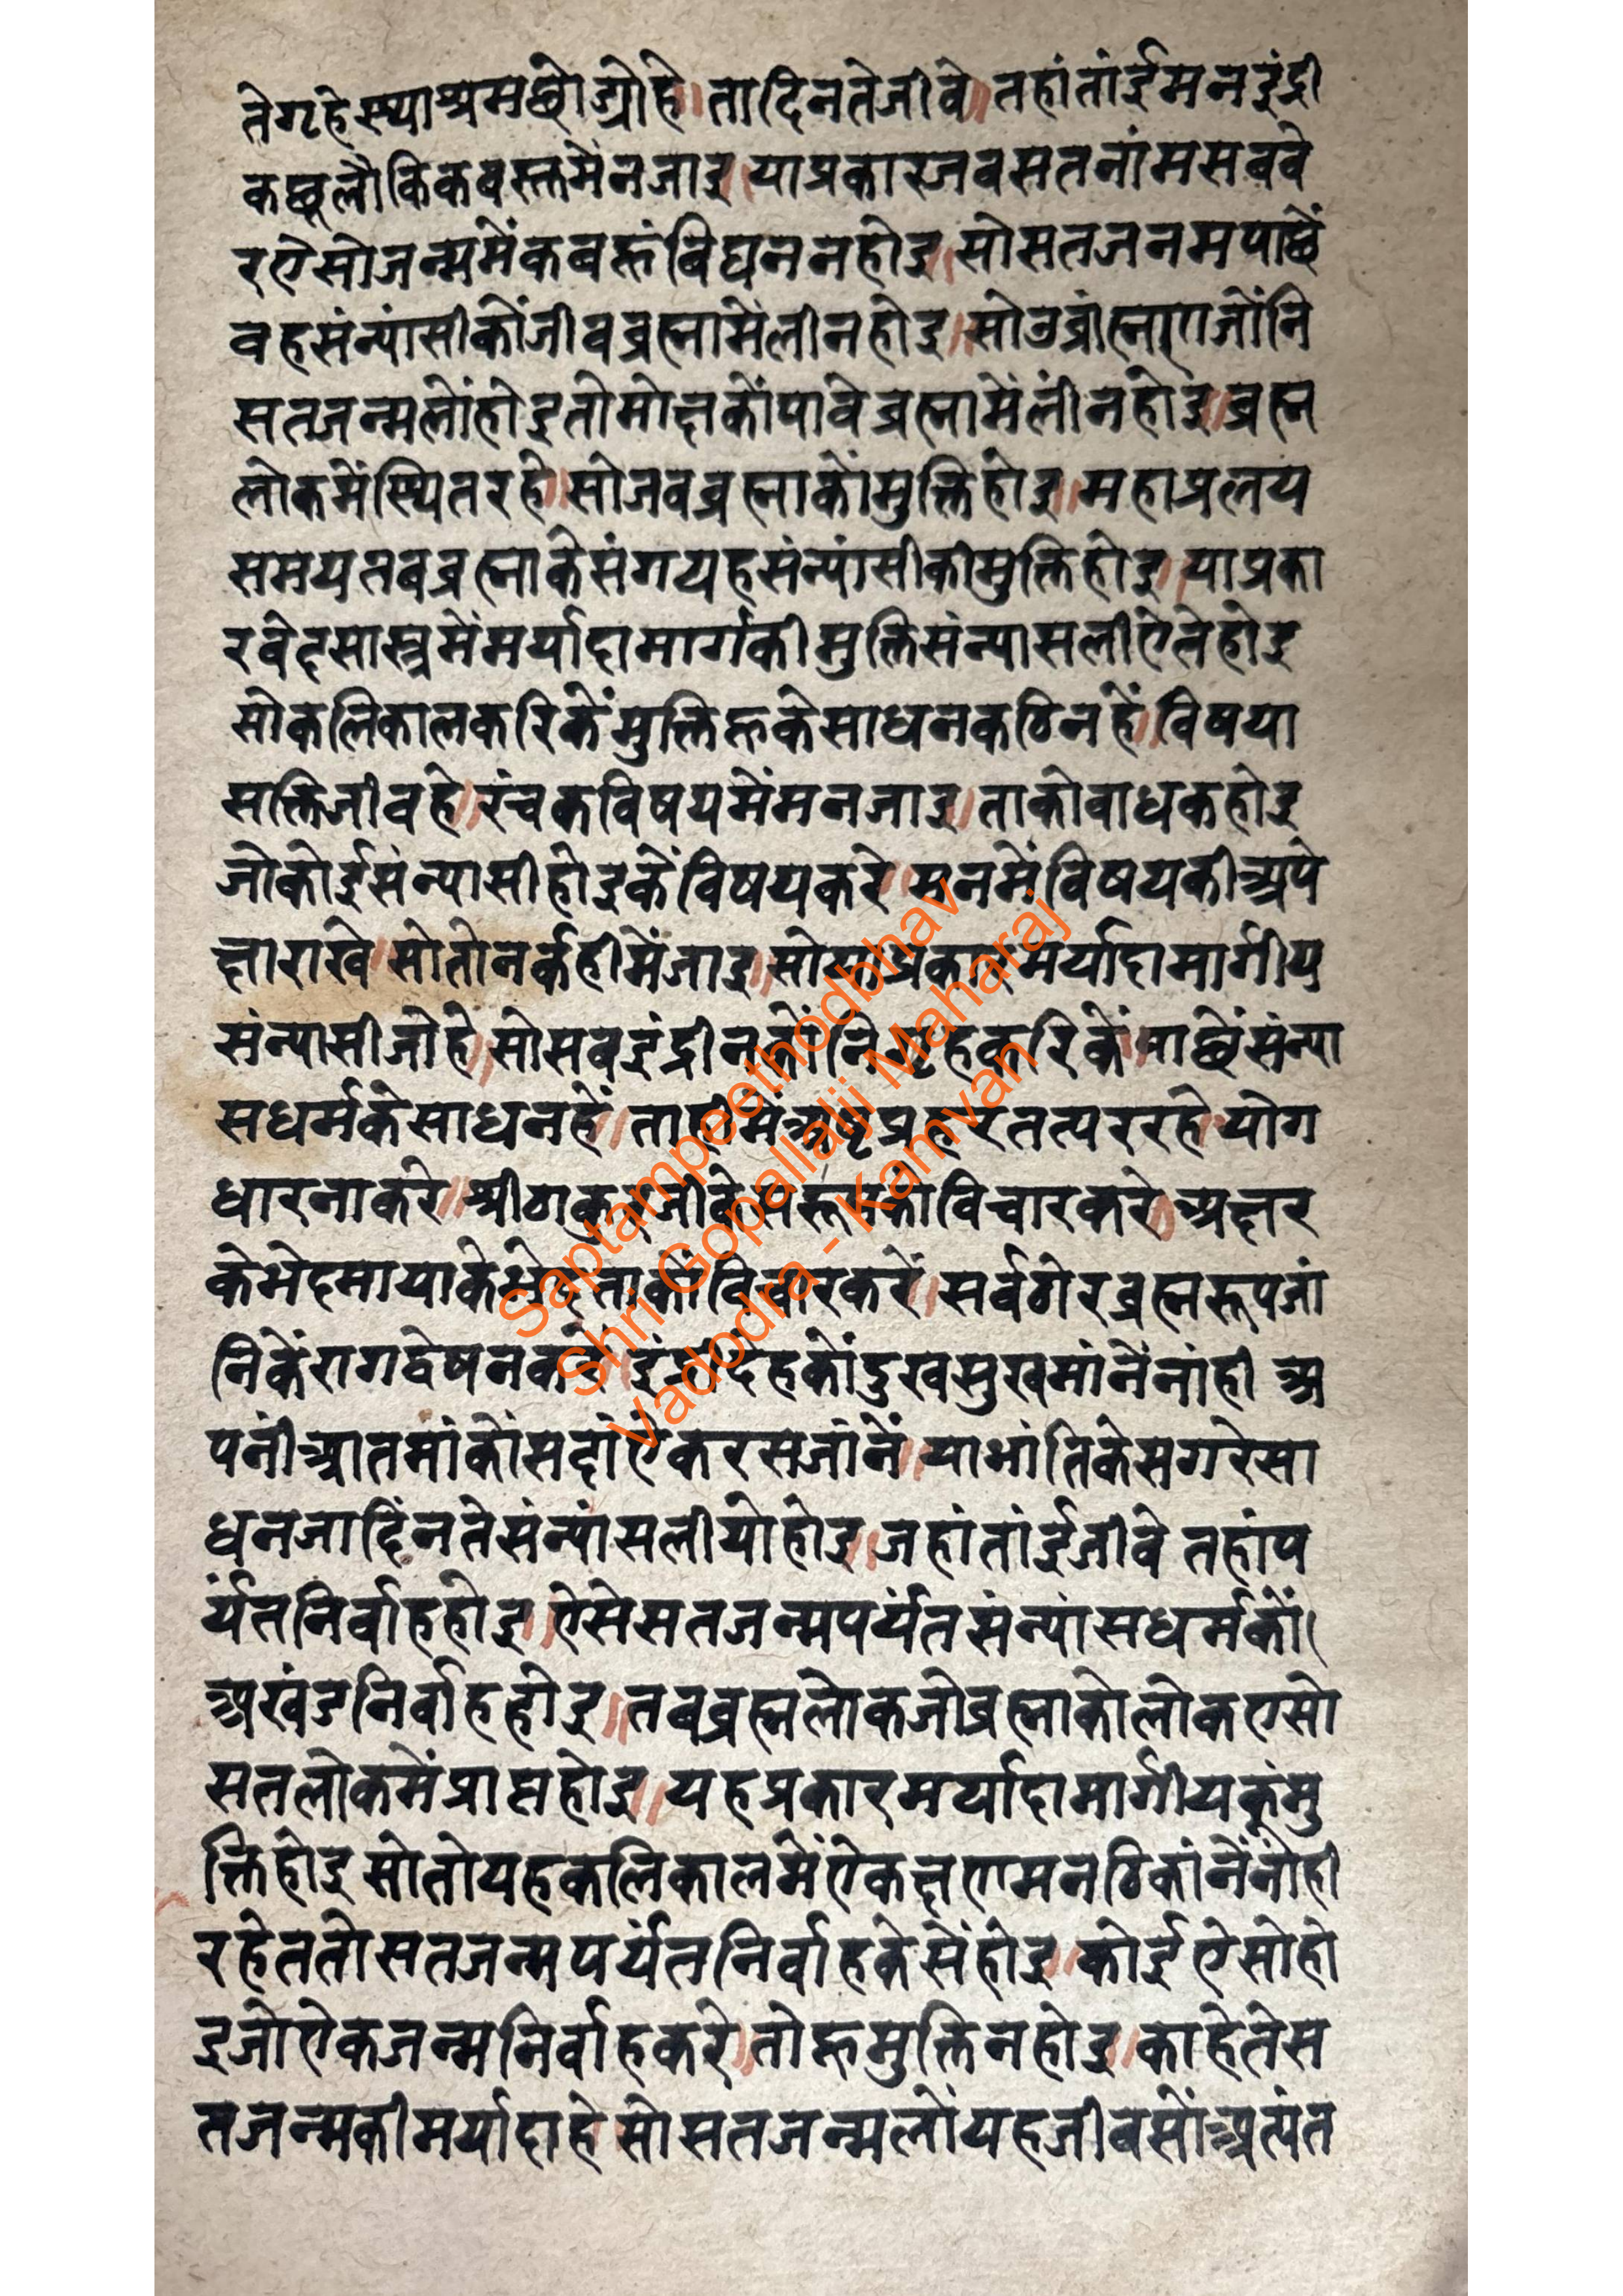 तेगृहेस्थाश्रमछोड्योहे॥तादिनतेजीवे॥तहांतांईमनइंद्री
कछूलौकिकवस्तमेंनजाइ॥याप्रकारजवसतनांमसबवे
रऐसोजन्ममेंकबहूंविघननहोइ॥सोसतजनमपाछें
वहसंन्यांसीकोंजीवब्रह्मामेंलीनहोइ॥सोउब्रांह्मणजोंनि
सतजन्मलोंहोइतोमोक्षकोंपावेब्रह्मामेंलींनहोइ॥ब्रह्म
लोकमेंस्थितरहे॥सोजबब्रह्माकोंमुक्तिहोइ॥महाप्रलय
समयतबब्रह्माकेसंगयहसंन्यांसीकीमुक्तिहोइ॥याप्रका
रवेदसास्त्रमेंमर्यादामार्गकीमुक्तिसंन्यासलीऐतेहोइ
सोकलिकालकरिकेंमुक्तिहूकेसाधनकठिनहें॥विषया
सक्तिजीवहे॥रंचकविषयमेंमनजाइ॥ताकोबाधकहोइ
जोकोईसंन्यासीहोइकेंविषयकरे॥मनमेंविषयकीअपे
क्षाराखे॥सोतोनर्कहीमेंजाइ॥सोयाप्रकारमर्यादामार्गीय
संन्यासीजोहे॥सोसबइंद्रीनकोंनिगृहकरिकें॥पाछेंसंन्या
सधर्मकेसाधनहें॥ताहीमेंअष्टप्रहरतत्पररहे॥योग
धारनाकरे॥श्रीठाकुरजीकेस्वरूपकोविचारकरे॥अक्षर
केभेदमायाकेभेदताकोंविचारकरें॥सर्वठोरब्रह्मरूपजां
निकेंरागद्वेषनकरें॥इंद्रीदेहकोंदुखसुखमांनेंनांही अ
पनींआतमांकोंसदांऐंकरसजांनें॥याभांतिकेसगरेसा
धनजादिंनतेसंन्यांसलीयोहोइ॥जहांतांईजीवे तहांप
र्यंतनिर्वाहहोइ॥ऐसेसतजन्मपर्यंतसंन्यांसधर्मकों।
अखंडनिर्वाहहोइ॥तबब्रह्मलोकजोब्रह्माकोलोकएसो
सतलोकमेंप्राप्तहोइ॥यहप्रकारमर्यादामार्गीयकूंमु
क्तिहोइ सोतोयहकलिकालमेंऐकक्षणमनठिकांनेंनांही
रहेततोसतजन्मपर्यंतनिर्वाहकेसेंहोइ॥कोईऐसोहो
इजोऐकजन्मनिर्वाहकरे॥तोहूमुक्तिनहोइ॥काहेतेस
तजन्मकीमर्यादाहे॥सोसतजन्मलोंयहजीवसोंअत्यंत
Saptampeethodbhav
Shri Gopallalji Maharaj
Vadodra - Kamvan